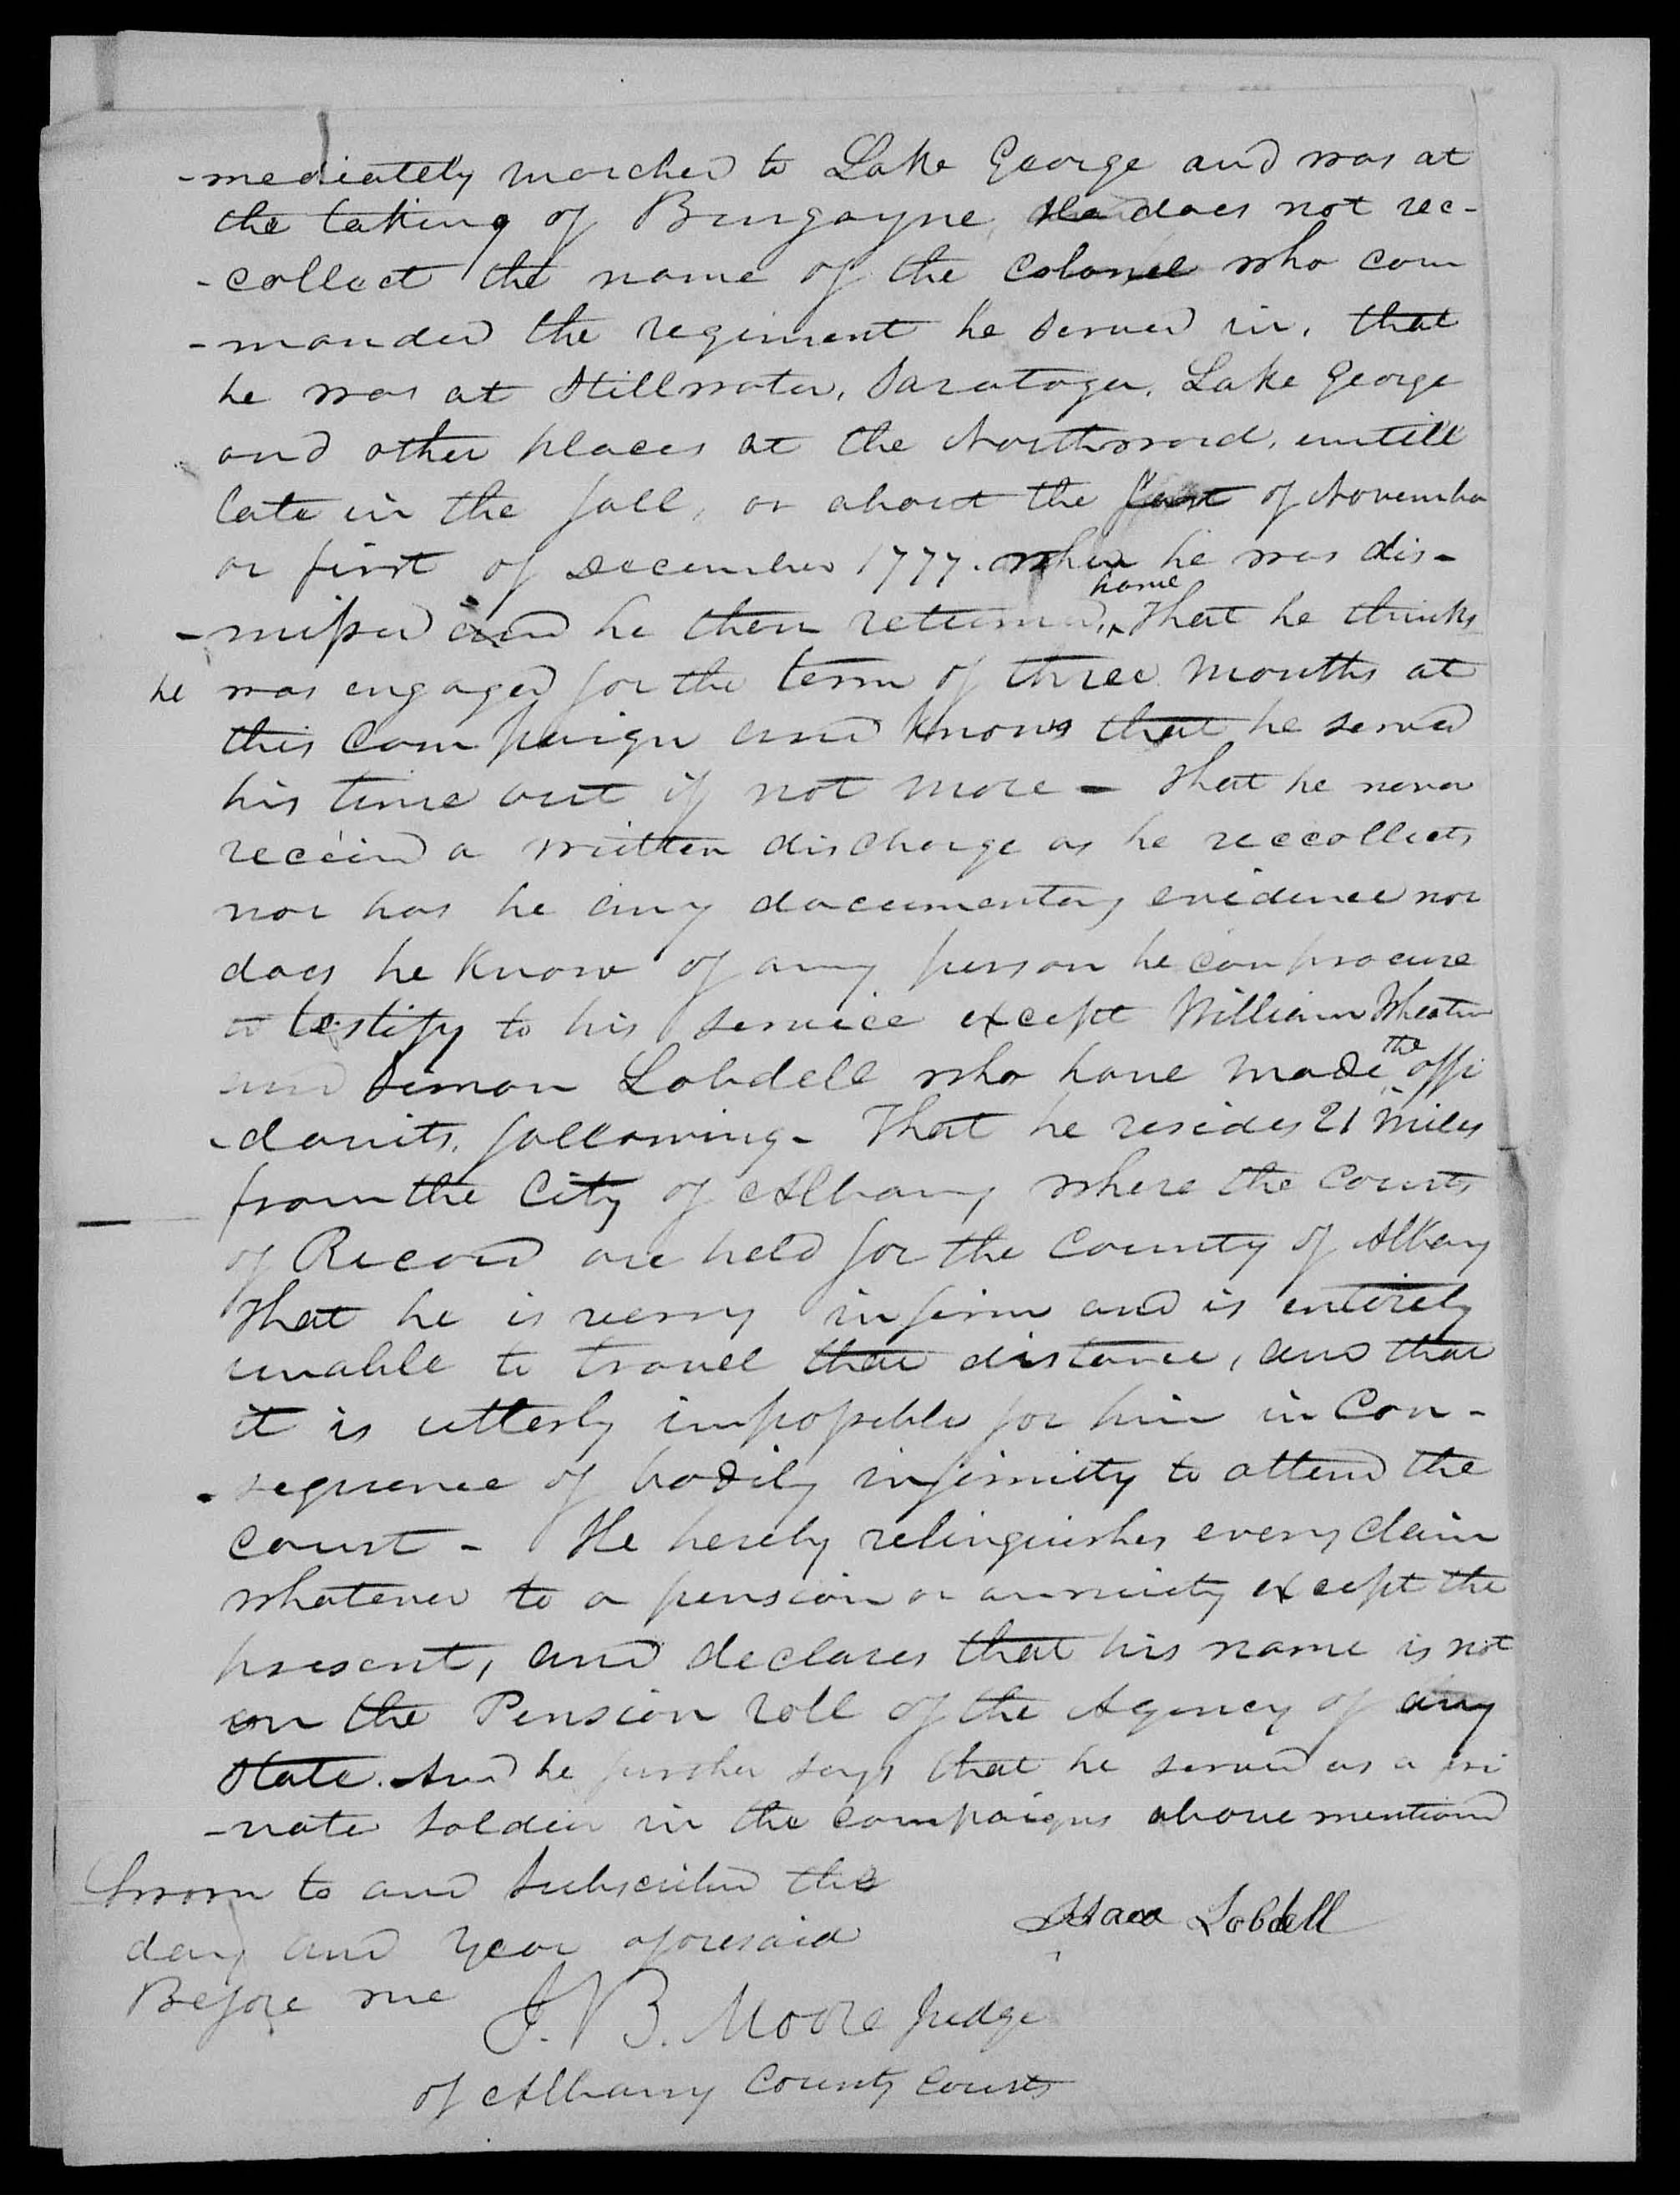 -mediately marched to Lake George and was at
the taking of Burgoyne, He does not rec-
-collect the name of the Colonel who com
-manded the regiment he served in. that
he was at Stillwater, Saratoga, Lake George
and other places at the Northward, untill
late in the fall, or about the last of November
or first of December 1777. when he was dis-
-missed and he then returned home, That he thinks
he was engaged for the term of three months at
this Campaign and knows that he served
his time out if not more - That he never
received a written discharge as he reccollects
nor has he any documentary evidence nor
does he know of any person he can procure
to testify to his service except William Wheaton
and Simon Lobdell who have made the affi
-davits, following - That he resides 21 miles
from the City of Albany where the Courts
of Record are held for the County of Albany
That he is verry infirm and is entirely
unable to travel that distance, and that
it is utterly impossible for him in Con-
-sequence of bodily infirmity to attend the
Court - He hereby relinquishes every claim
whatever to a pension or annuity except the
present, and declares that his name is not
on the Pension roll of the Agency of any
State. And he further says that he served as a pri
-vate soldier in the campaigns above mentiond
Sworn to and Subscribed the
day and year aforesaid
Isaac Lobdell
Before me J. B. Moore Judge
of Albany County Courts